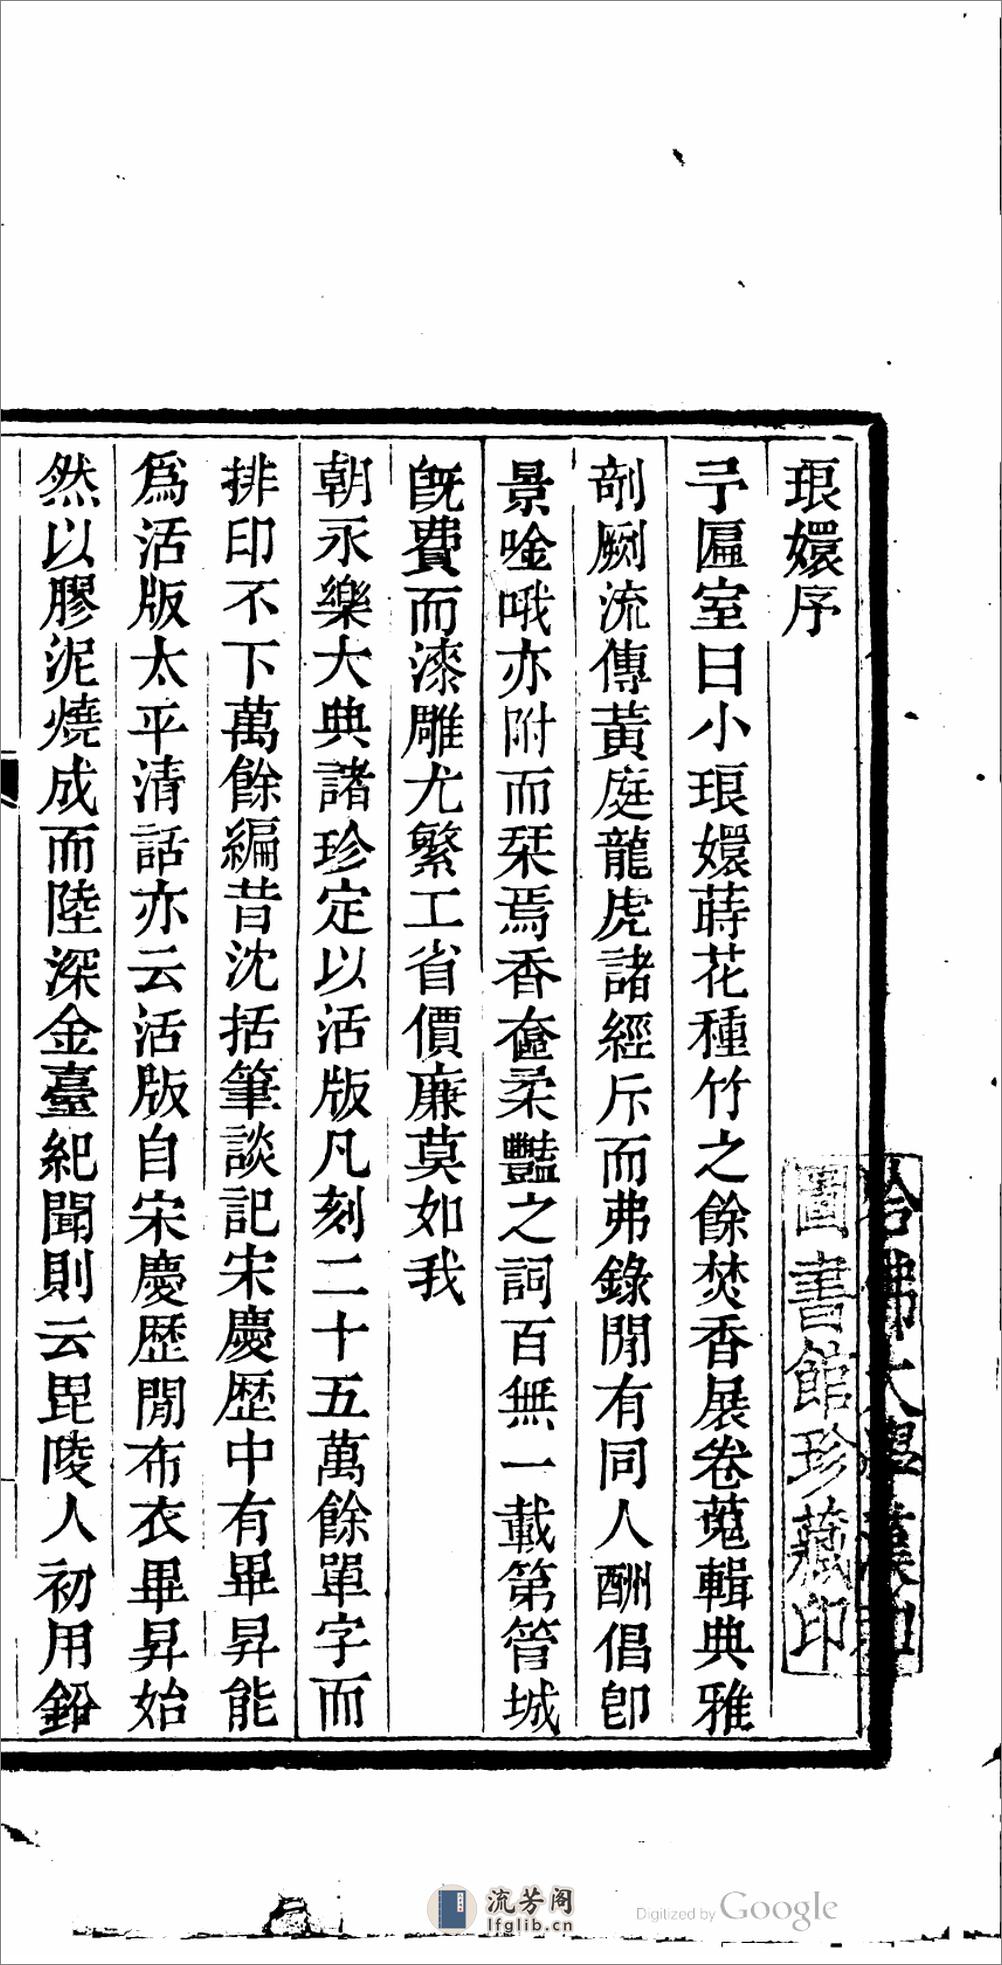 琅嬛序
予匾室曰小琅嬛蒔花種竹之餘焚香展卷蒐輯典雅
剞劂流傳黃庭龍虎諸經斥而弗錄閒有同人酬倡卽
景唫哦亦附而栞焉香奩柔豔之詞百無一載第管城
旣費而漆雕尤繁工省價廉莫如我
朝永樂大典諸珍定以活版凡刻二十五萬餘單字而
排印不下萬餘編昔沈括筆談記宋慶歴中有畢昇能
爲活版太平清話亦云活版自宋慶歴閒布衣畢昇始
然以膠泥燒成而陸深金臺紀聞則云毘陵人初用鉛
哈佛大學漢和
圖書館珍藏印
流芳阁
lfglib.cn
Digitized by Google